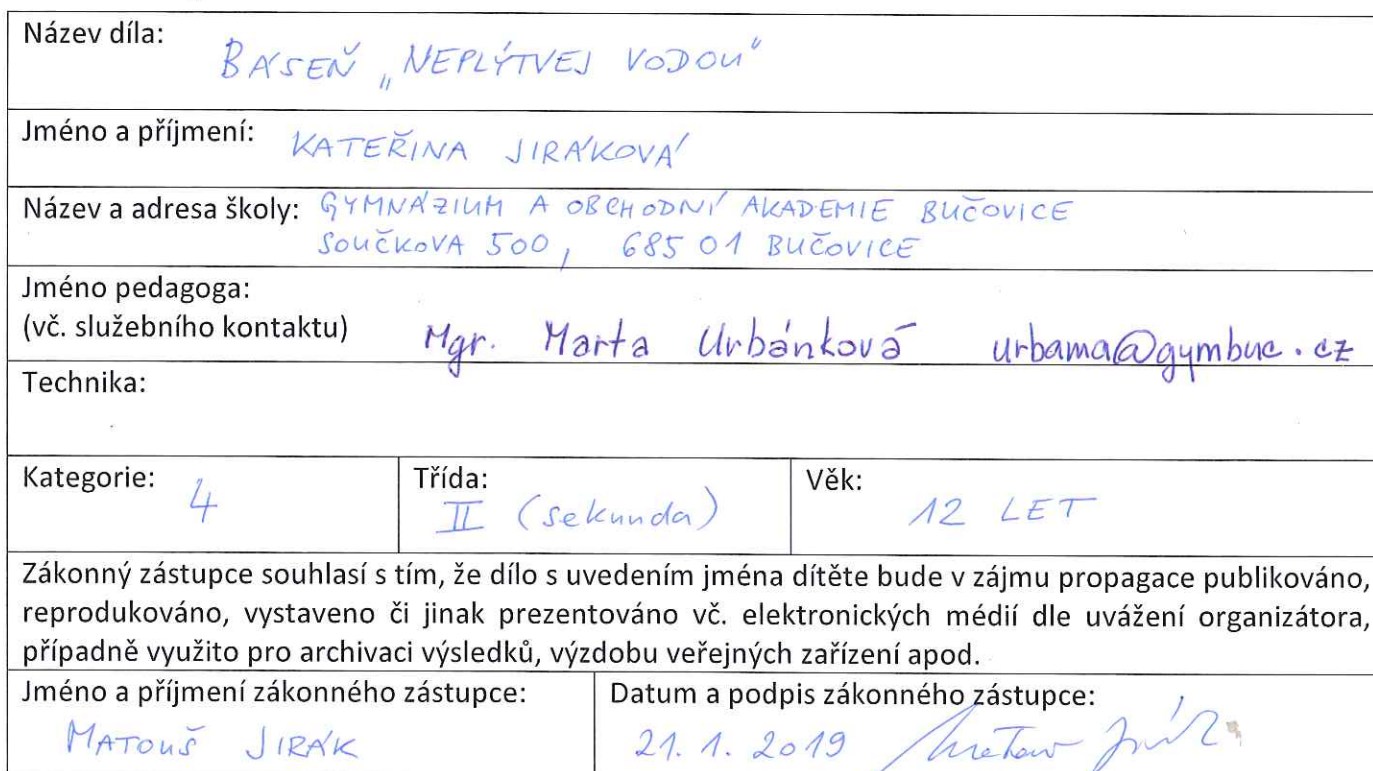 Název díla:
BÁSEŇ „NEPLÝTVEJ VODOU"
Jméno a příjmení: KATEŘINA JIRÁKOVÁ
Název a adresa školy: GYMNÁZIUM A OBCHODNÍ AKADEMIE BUČOVICE
SOUČKOVA 500, 685 01 BUČOVICE
Jméno pedagoga:
(vč. služebního kontaktu) Mgr. Marta Urbánková urbama@gymbuc.cz
Technika:
Kategorie: 4
Třída: II (sekunda)
Věk: 12 LET
Zákonný zástupce souhlasí s tím, že dílo s uvedením jména dítěte bude v zájmu propagace publikováno,
reprodukováno, vystaveno či jinak prezentováno vč. elektronických médií dle uvážení organizátora,
případně využito pro archivaci výsledků, výzdobu veřejných zařízení apod.
Jméno a příjmení zákonného zástupce:
MATOUŠ JIRÁK
Datum a podpis zákonného zástupce:
21. 1. 2019